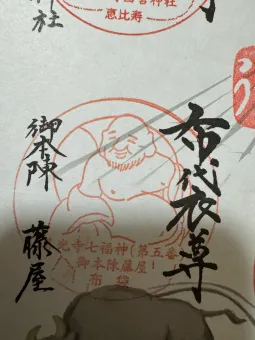 神社
恵比寿
う
布袋尊
御本陳
藤屋
光寺七福神(第五番
御本陳藤屋
布袋